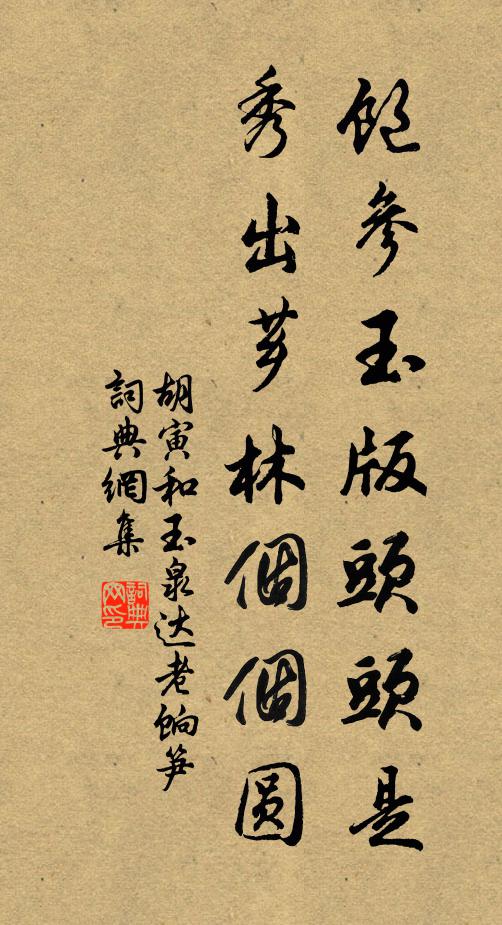 飽參玉版頭頭是
秀出芽林個個圓
胡寅和玉泉达老餉笋
詞典網集
詞典网印